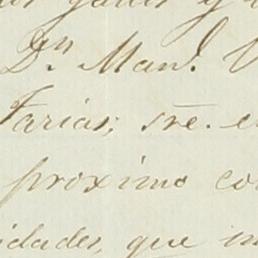 Dn. Manl.
Farias; sre. e
proximo co
idades, que in